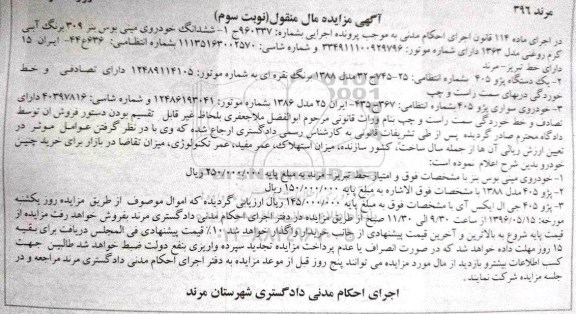 مرند ۳۹۶
آگهی مزایده مال منقول(نوبت سوم)
در اجرای ماده ۱۱۴ قانون اجرای احکام مدنی به موجب پرونده اجرایی بشماره: ۹۶۰۳۳۷ج ۱- ششدانگ خودروی مینی بوس بنز ۳۰۹ برنگ آبی
کرم روغنی مدل ۱۳۶۳ دارای شماره موتور: ۳۳۴۹۱۱۱۰۰۹۲۹۷۹۶ و شماره شاسی: ۱۱۱۳۵۱۶۳۰۰۲۵۷۰ شماره انتظامی: ۶۳۶ع۴۴- ایران ۱۵
دارای خط تبریز- مرند
۲- یک دستگاه پژو ۴۰۵ بشماره انتظامی: ۲۵-۷۴۵ج۳۲ مدل ۱۳۸۸ برنگ نقره ای به شماره موتور: ۱۲۴۸۹۱۱۴۱۰۵ دارای تصادفی و خط
خوردگی دربهای سمت راست و چپ
۳- خودروی سواری پژو ۴۰۵ بشماره انتظامی: ۳۶۷ج۴۳۵- ایران ۲۵ مدل ۱۳۸۶ بشماره موتور: ۱۲۴۸۶۱۹۳۰۴۱ و شماره شاسی: ۴۰۳۹۷۸۱۶ دارای
تصادف و خط خوردگی سمت راست و چپ بنام وراث قانونی مرحوم ابوالفضل ملاجعفری بلحاظ غیر قابل تقسیم بودن دستور فروش آن توسط
دادگاه محترم صادر گردیده پس از طی تشریفات قانونی به کارشناس رسمی دادگستری ارجاع شده که وی با در نظر گرفتن عوامل موثر در
تعیین ارزش ریالی آن ها از جمله سال ساخت، کشور سازنده، میزان استهلاک، عمر مفید، عمر تکنولوژی، میزان تقاضا در بازار برای خرید چنین
خودرو بدین شرح اعلام نموده است:
۱- خودروی مینی بوس بنز با مشخصات فوق و امتیاز خط تبریز- مرند به مبلغ پایه ۲۵۰/۰۰۰/۰۰۰ ریال
۲- پژو ۴۰۵ مدل ۱۳۸۸ با مشخصات فوق الاشاره به مبلغ پایه ۱۵۰/۰۰۰/۰۰۰ ریال
۳- پژو ۴۰۵ جی ال ایکس آی با مشخصات فوق به مبلغ پایه ۱۴۵/۰۰۰/۰۰۰ ریال ارزیابی گردیده که اموال موصوف از طریق مزایده روز یکشنبه
مورخه: ۱۳۹۶/۰۵/۱۵ از ساعت ۹/۳۰ الی ۱۱/۳۰ صبح از طریق مزایده در دفتر اجرای احکام مدنی دادگستری مرند بفروش خواهد رفت مزایده از
قیمت پایه شروع به بالاترین و آخرین قیمت پیشنهادی از جانب خریدار واگذار خواهد شد ۱۰٪ قیمت پیشنهادی فی المجلس دریافت برای بقیه
۱۵ روز مهلت داده خواهد شد که در صورت انصراف یا عدم پرداخت مزایده تجدید سپرده واریزی بنفع دولت ضبط خواهد شد طالبین جهت
کسب اطلاعات بیشتر و بازدید از مال مورد مزایده می توانند پنج روز قبل از موعد مزایده به دفتر اجرای احکام مدنی دادگستری مرند مراجعه و در
جلسه مزایده شرکت نمایند.
اجرای احکام مدنی دادگستری شهرستان مرند